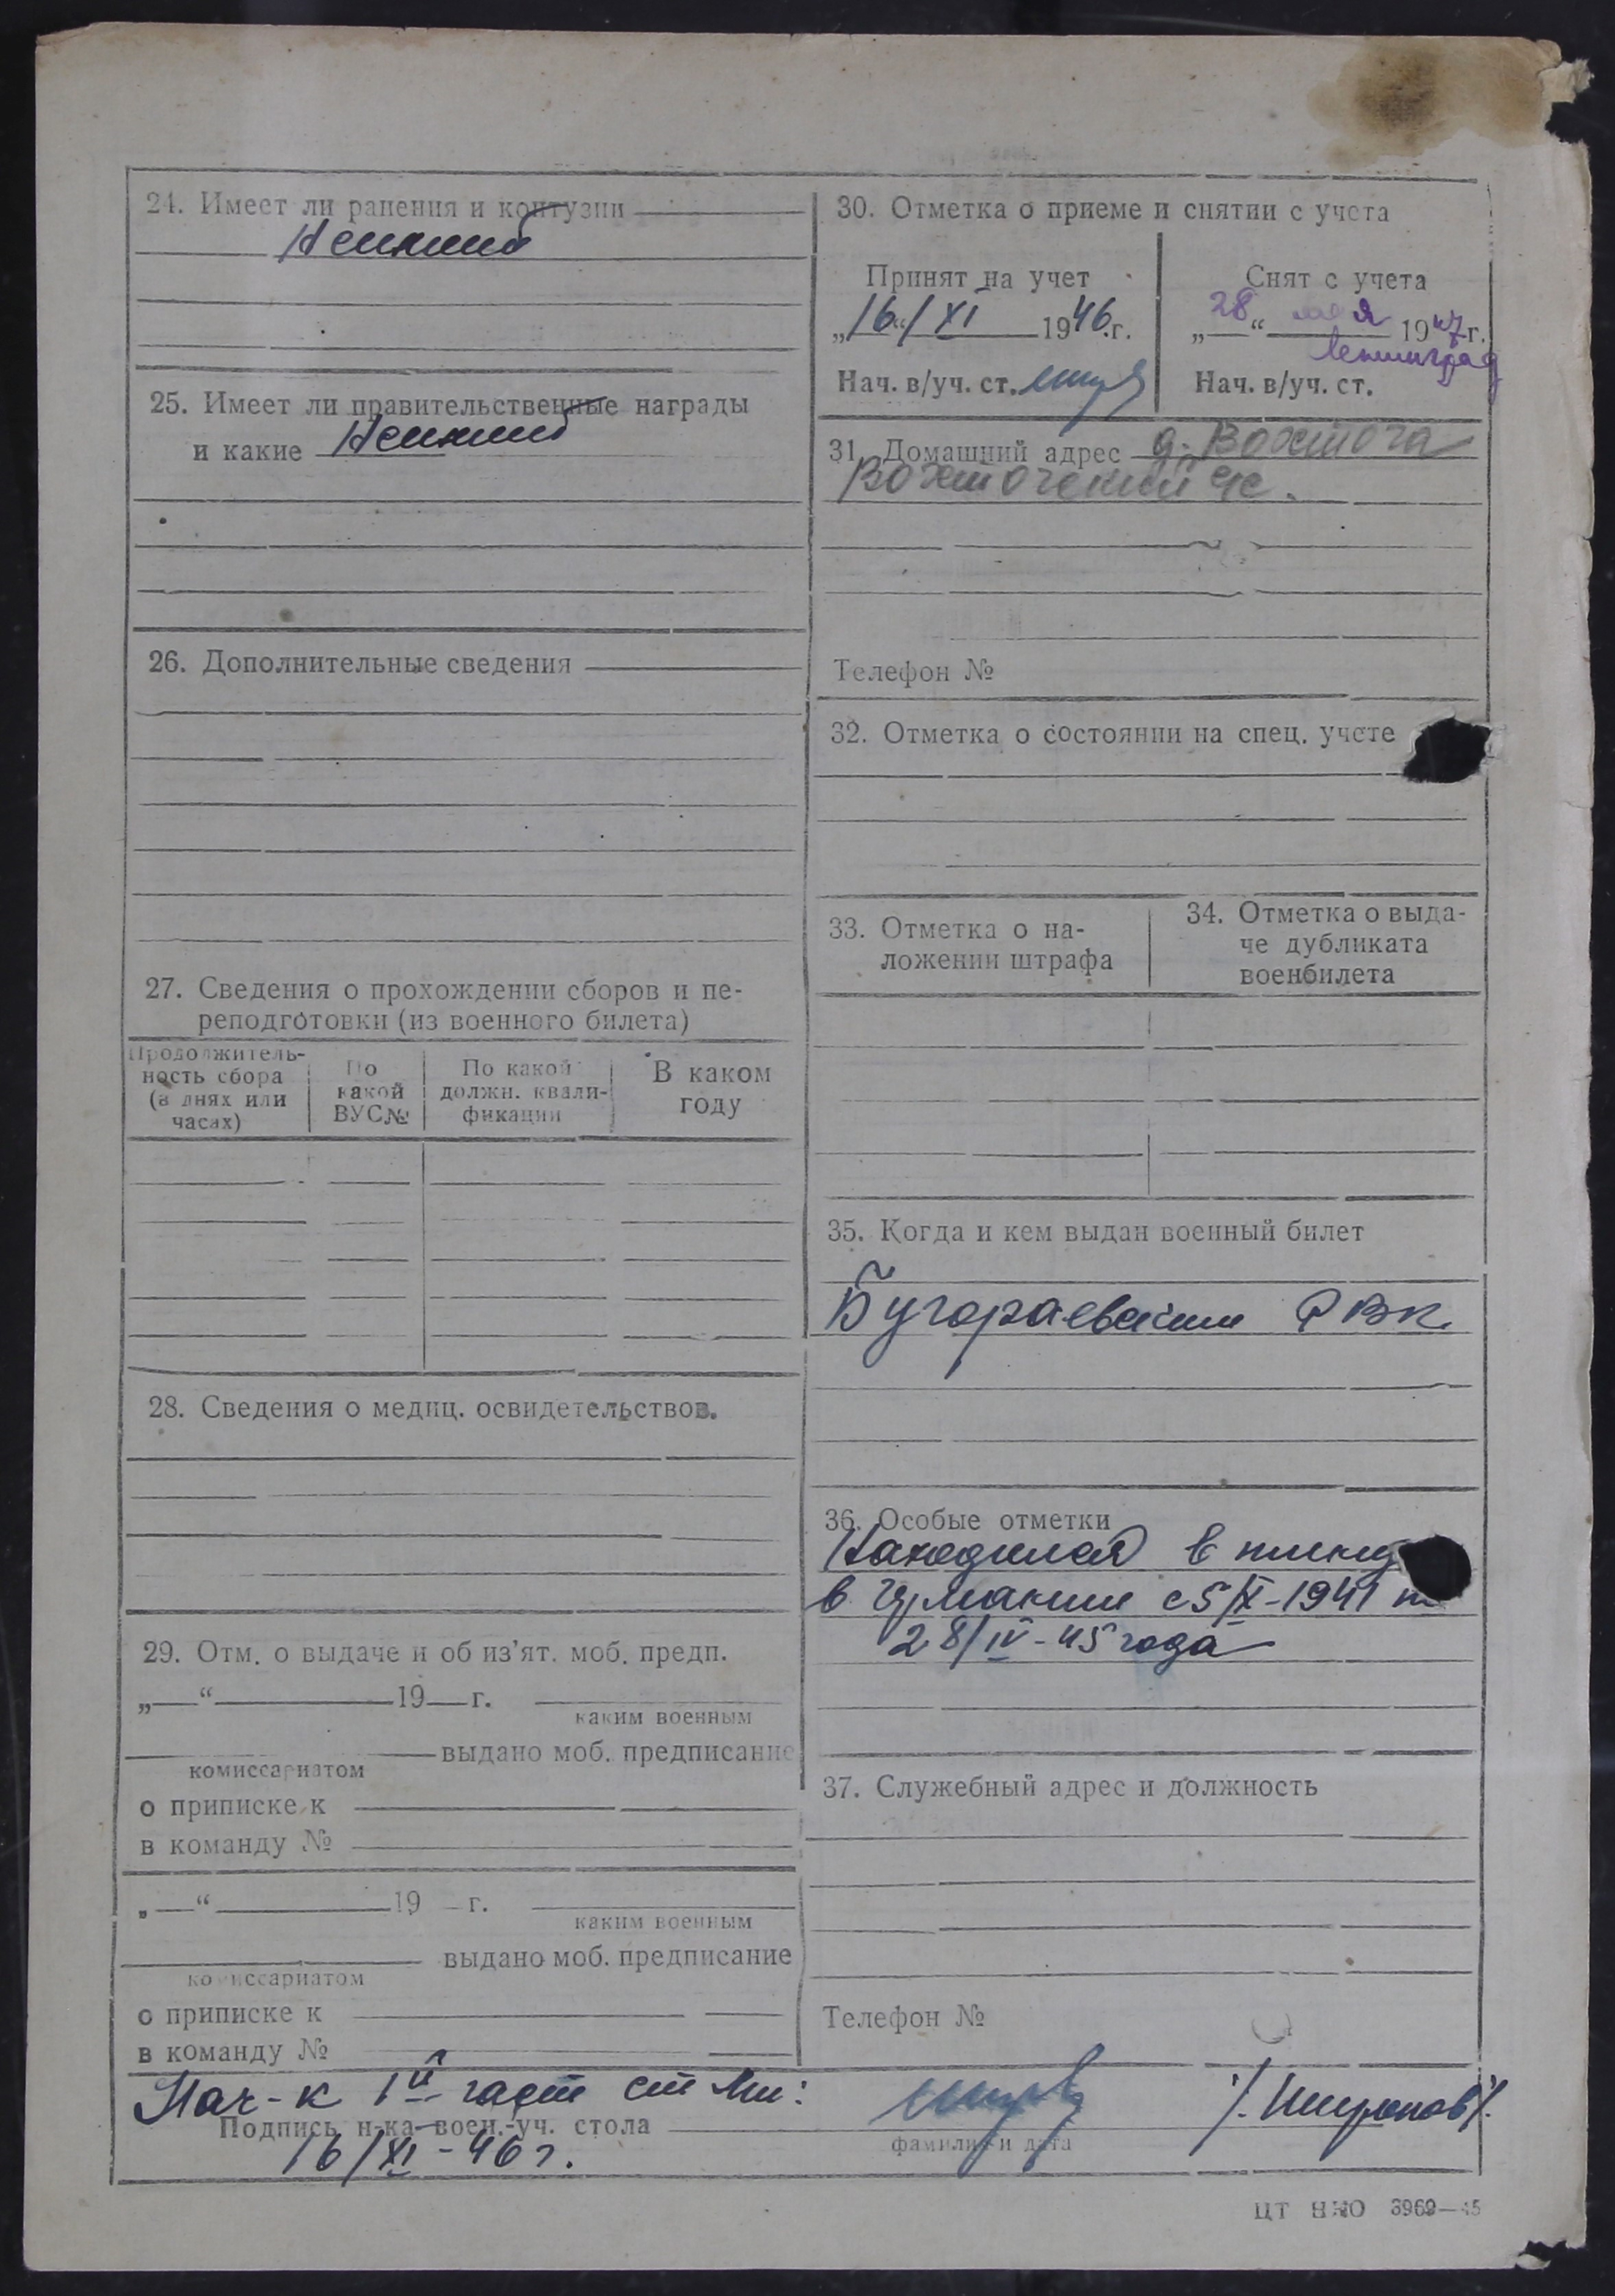 24. Имеет ли ранения и контузии
Не имеет
25. Имеет ли правительственные награды
и какие Не имеет
26. Дополнительные сведения
27. Сведения о прохождении сборов и пе-
реподготовки (из военного билета)
Продолжитель-
ность сбора
(в днях или
часах)
По
какой
ВУС №
По какой
должн. квали-
фикации
В каком
году
28. Сведения о медиц. освидетельствов.
29. Отм. о выдаче и об из'ят. моб. предп.
„ “ 19 г.
каким военным
выдано моб. предписание
комиссариатом
о приписке к
в команду №
„ “ 19 г.
каким военным
выдано моб. предписание
комиссариатом
о приписке к
в команду №
30. Отметка о приеме и снятии с учета
Принят на учет
„16“/XI 1946 г.
Нач. в/уч. ст.
Снят с учета
„28“ мая 1947 г.
Ленинград
Нач. в/уч. ст.
31. Домашний адрес д. Вохтога
Вохтожский с/с.
Телефон №
32. Отметка о состоянии на спец. учете
33. Отметка о на-
ложении штрафа
34. Отметка о выда-
че дубликата
военбилета
35. Когда и кем выдан военный билет
РВК.
36. Особые отметки
Находился в плену
в Германии с 5/X-1941 п
28/IV-45 года
37. Служебный адрес и должность
Телефон №
Нач-к 1й част
Подпись н-ка воен.-уч. стола
16/XI-46 г.
фамилия и дата
ЦТ НКО 3969—45